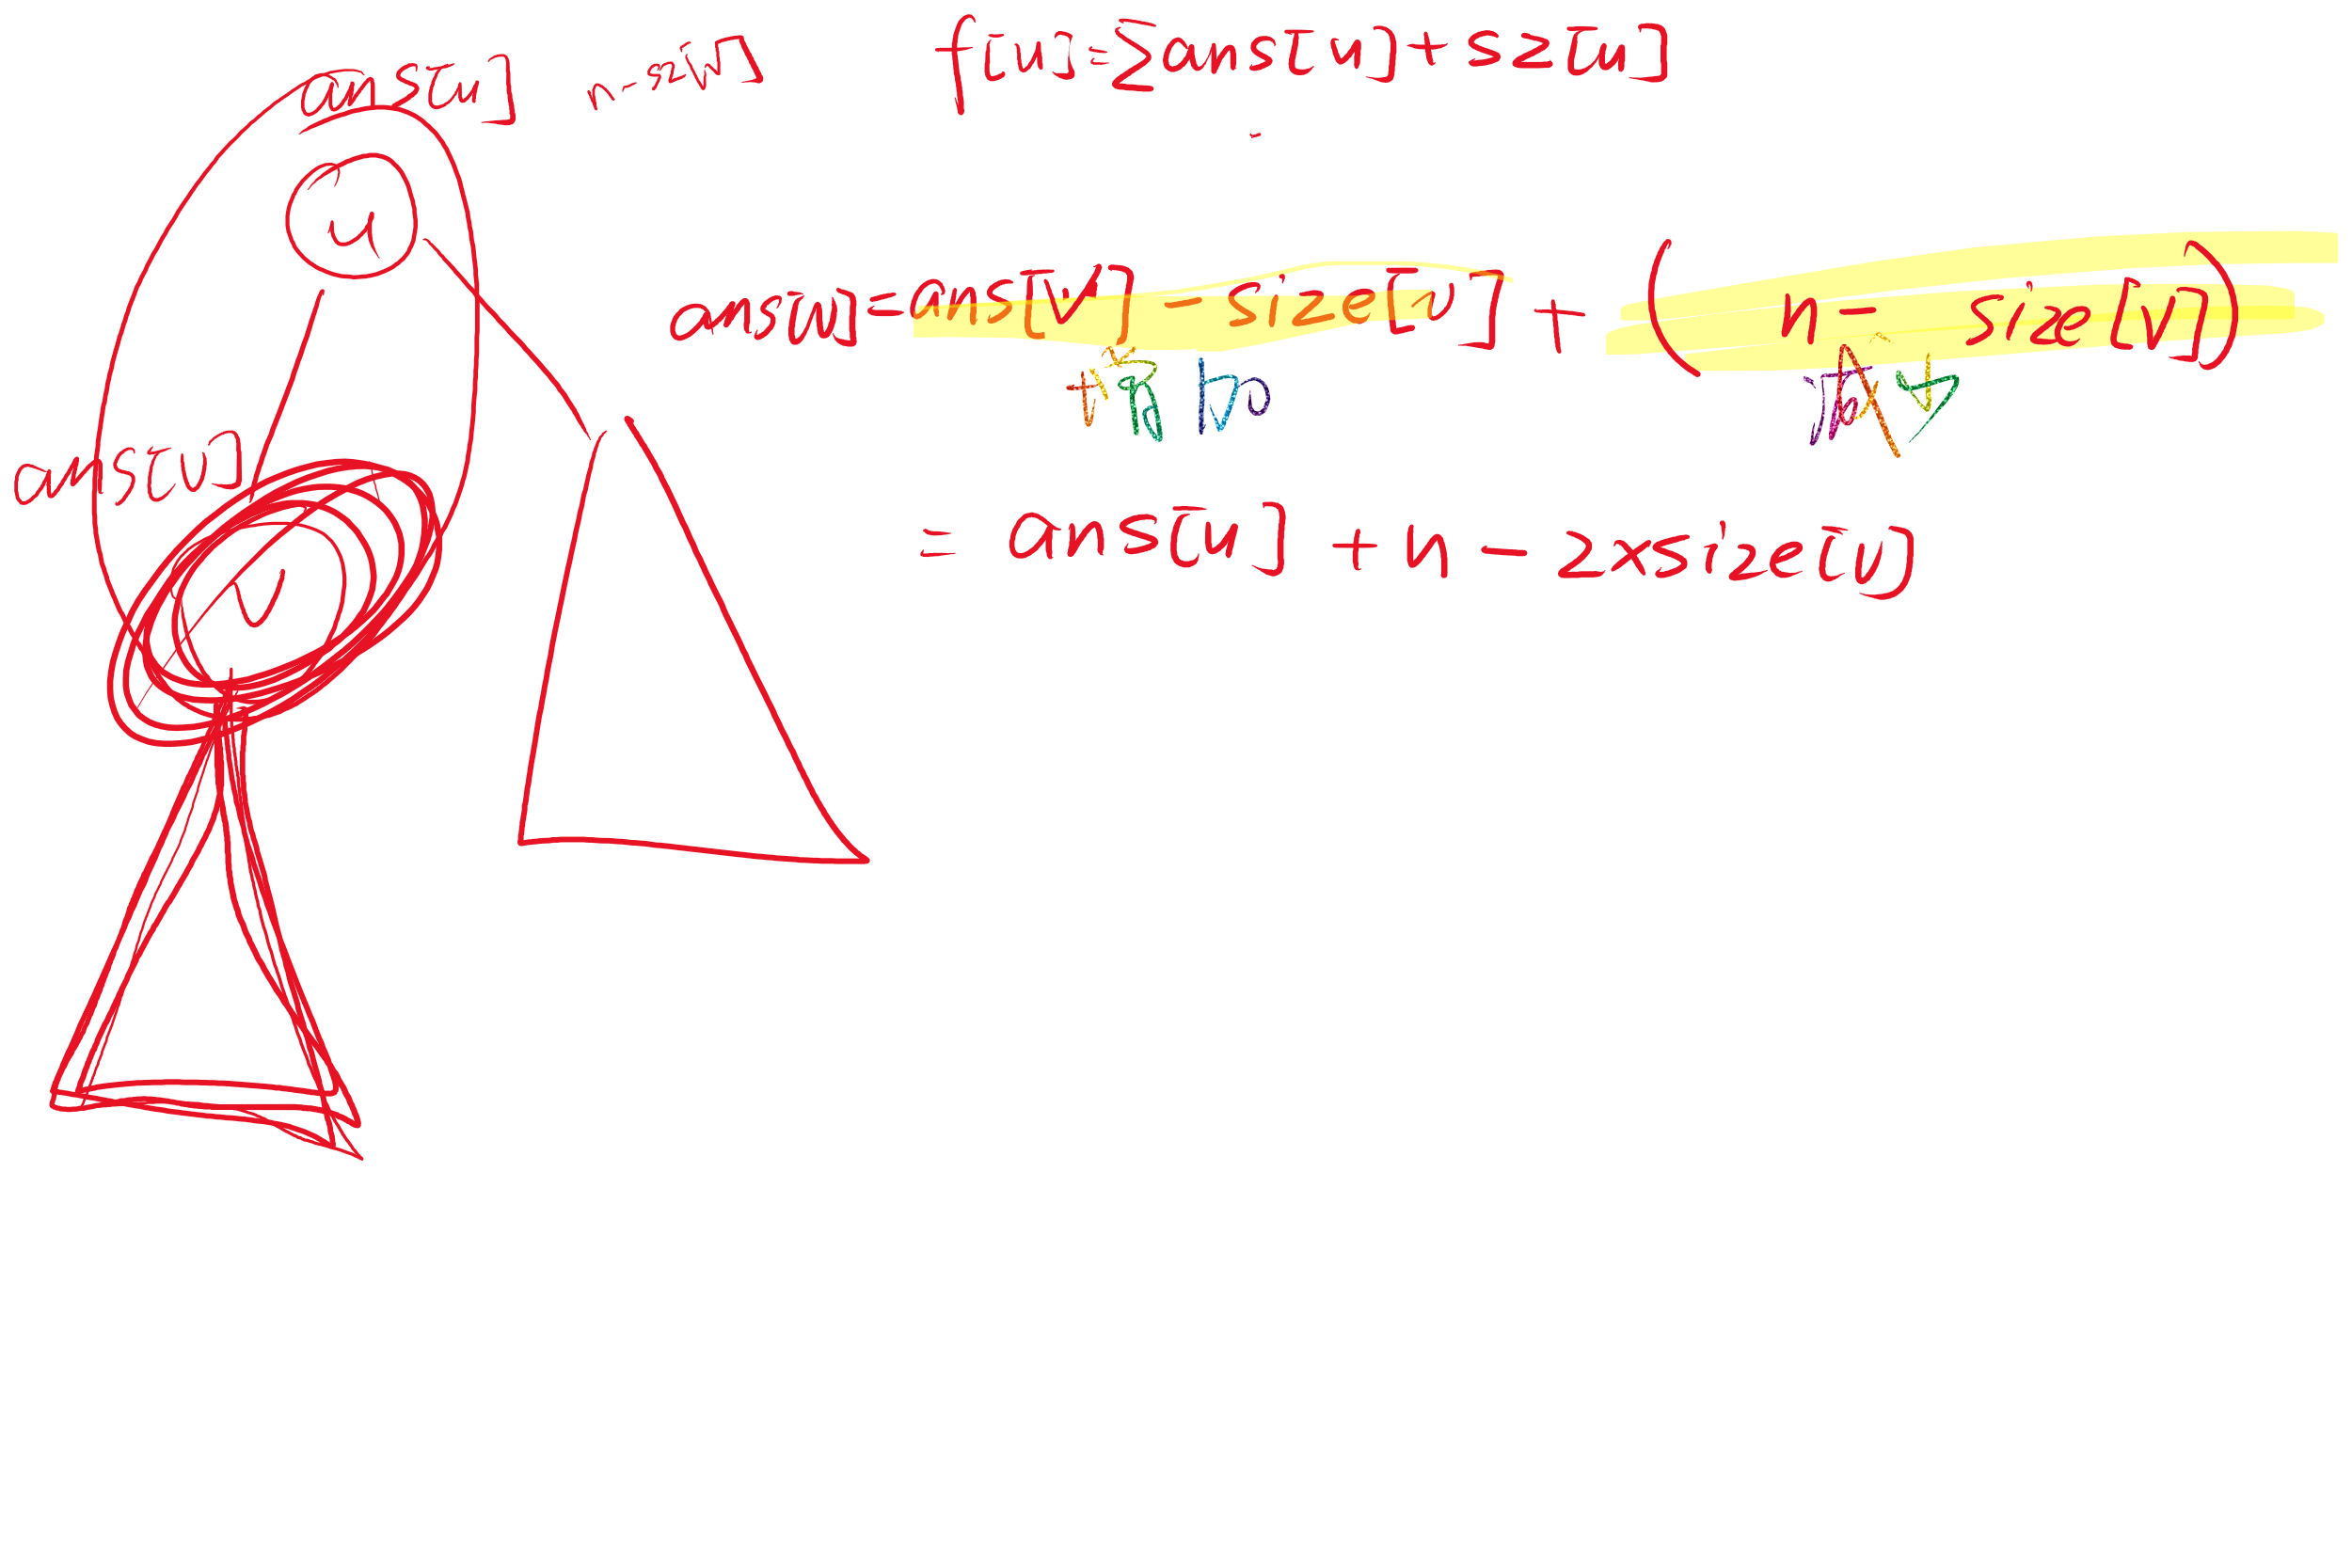 ans[u] n-sz[v] f[u]=∑ans[u]+sz[u]
u
ans[v]=ans[v]-size[v]+(n-size[v])
增加 减少
ans[v]
=ans[u]+n-2×size[v]
v